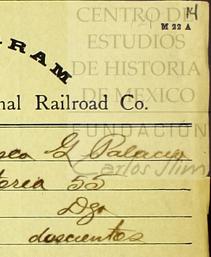 CENTRO DE
ESTUDIOS
DE HISTORIA
DE MEXICO
14
M 22 A
RAM
nal Railroad Co.
FUNDACIÓN
Carlos Slim
sco G Palacio
toria 55
Dgo
doscientos